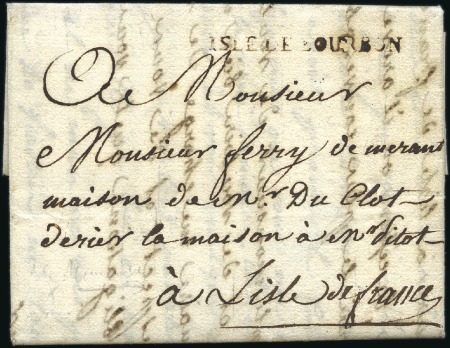 ISLE DE BOURBON
A Monsieur
Monsieur ferry de merans
maison de Mr Du Clot
derier la maison à Mr Vitot
à Lisle de france